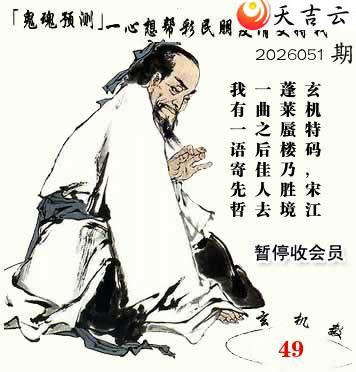 天吉云
「鬼魂预测」一心想帮彩民朋友
2026051 期
玄机特码,宋江
蓬莱蜃楼乃胜境
一曲之后佳人去
我有一语寄先哲
暂停收会员
玄机数
49